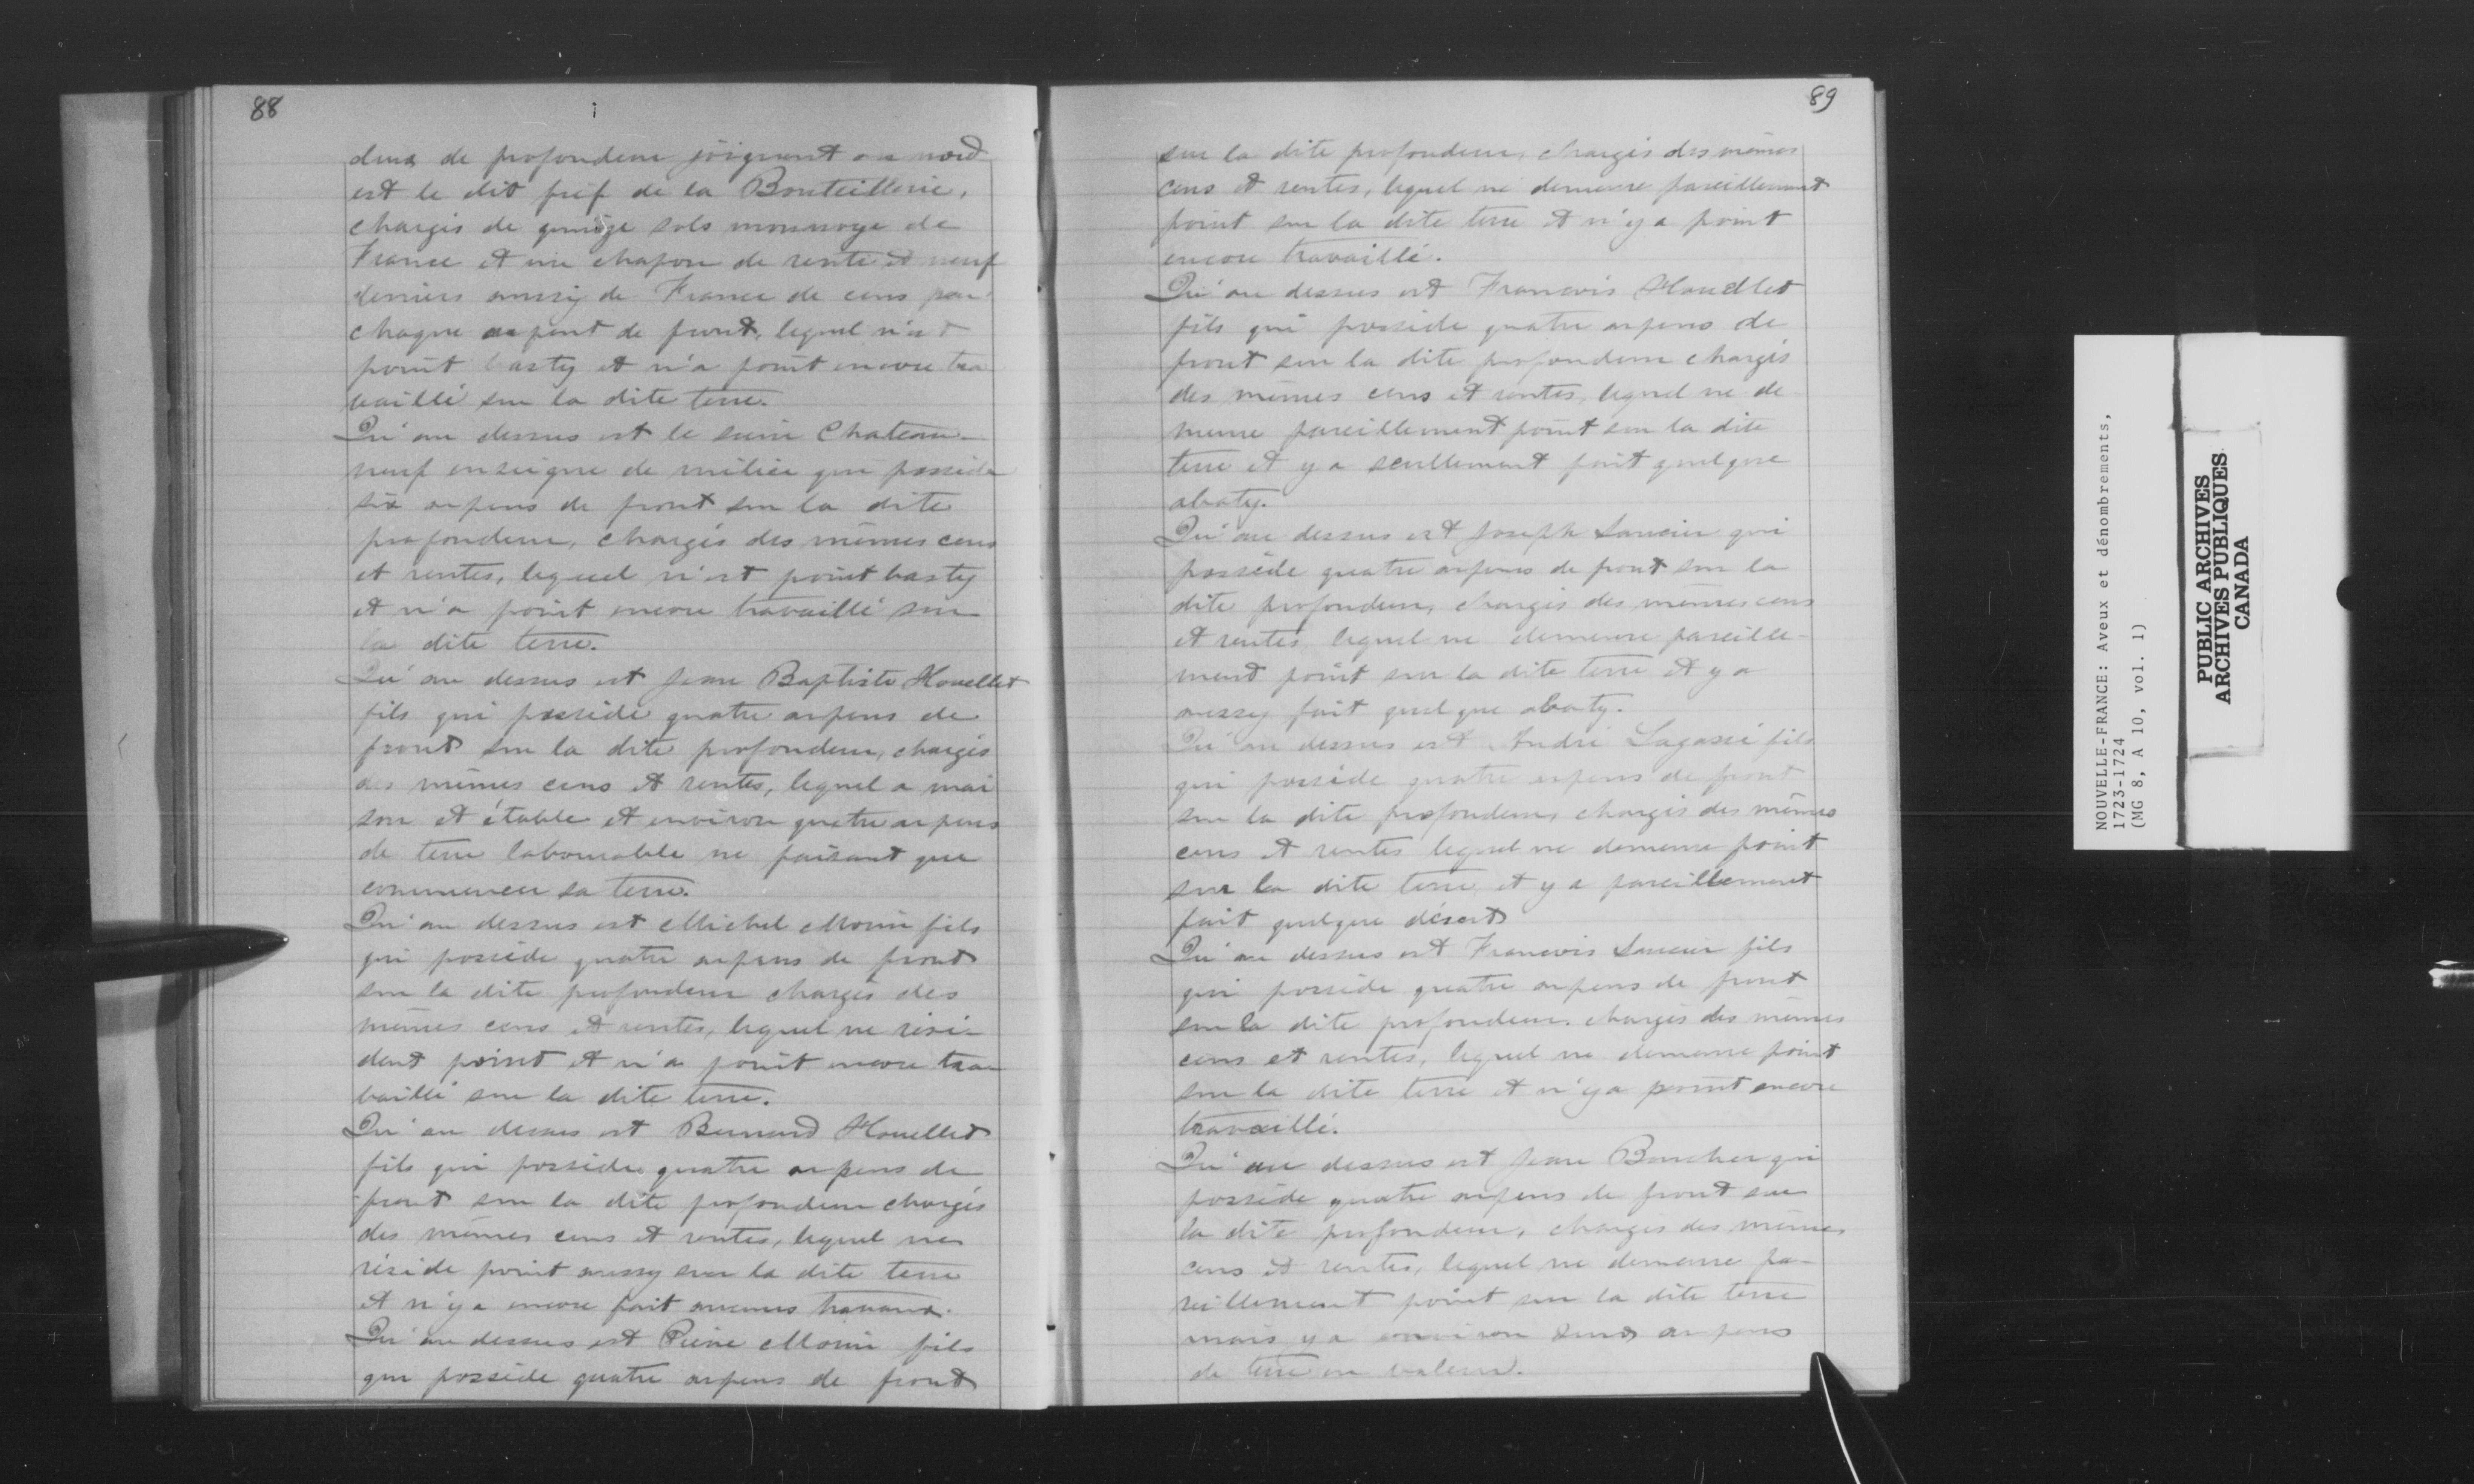 88
deux de profondeur joignant au nord
est le dit fief de la Bouteillerie,
chargés de quinze sols monnoye de
France et un chapon de rente et neuf
deniers aussy de France de cens par
chaque arpent de front, lequel n'est
point basty et n'a point encore tra
vaillé sur la dite terre.
Qu'au dessus est le sieur Chateau-
neuf enseigne de milice qui possede
six arpens de front sur la dite
profondeur, chargés des mêmes cens
et rentes, lequel n'est point basty
et n'a point encore travaillé sur
la dite terre.
Qu'au dessus est Jean Baptiste Houellet
fils qui possède quatre arpens de
front sur la dite profondeur, chargés
des mêmes cens et rentes, lequel a mai
son et étable et environ quatre arpens
de terre labourable ne faisant que
commencer sa terre.
Qu'au dessus est Michel Morin fils
qui possède quatre arpens de front
sur la dite profondeur chargés des
mêmes cens et rentes, lequel ne rési-
dent point et n'a point encore tra-
vaillé sur la dite terre.
Qu'au dessus est Bernard Houellet
fils qui possède quatre arpens de
front sur la dite profondeur chargés
des mêmes cens et rentes, lequel ne
réside point aussy sur la dite terre
et n'y a encore fait aucuns travaux.
Qu'au dessus est Pierre Morin fils
qui possède quatre arpens de front
89
sur la dite profondeur, chargés des mêmes
cens et rentes, lequel ne demeure pareillement
point sur la dite terre et n'y a point
encore travaillé.
Qu'au dessus est Francois Houellet
fils qui possède quatre arpens de
front sur la dite profondeur chargés
des mêmes cens et rentes, lequel ne de-
meure pareillement point sur la dite
terre et y a seullement fait quelque
abaty.
Qu'au dessus est Joseph Saucier qui
possède quatre arpens de front sur la
dite profondeur, chargés des mêmes cens
et rentes lequel ne demeure pareille-
ment point sur la dite terre et y a
aussy fait quelque abaty.
Qu'au dessus est André Lagassé fils
qui possède quatre arpens de front
sur la dite profondeur, chargés des mêmes
cens et rentes lequel ne demeure point
sur la dite terre et y a pareillement
fait quelque désert
Qu'au dessus est Francois Saucier fils
qui possède quatre arpens de front
sur la dite profondeur, chargés des mêmes
cens et rentes, lequel ne demeure point
sur la dite terre et n'y a point encore
travaillé.
Qu'au dessus est Jean Boucher qui
possède quatre arpens de front sur
la dite profondeur, chargés des mêmes
cens et rentes, lequel ne demeure pa-
reillement point sur la dite terre
mais y a environ deux arpens
de terre en valeur.
NOUVELLE-FRANCE: Aveux et dénombrements,
1723-1724
(MG 8, A 10, vol. 1)
PUBLIC ARCHIVES
ARCHIVES PUBLIQUES
CANADA